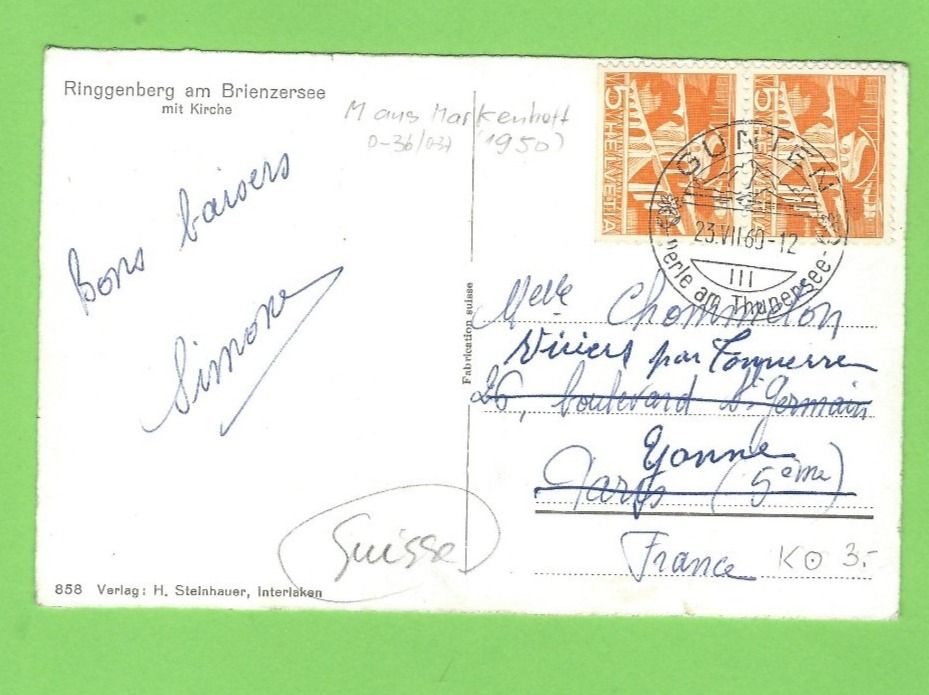 Ringgenberg am Brienzersee
mit Kirche
M aus Markenheft
(1950)
Bons baisers
Simone
Suisse
858 Verlag: H. Steinhauer, Interlaken
Fabrication suisse
5 HELVETIA
5 HELVETIA
GUNTEN
23.VII 60-12
III
Perle am Thunersee
Melle Chommeton
Viviers par Tonnerre
26, boulevard St Germain
Yonne
Paris (5ème)
France
KO 3.-